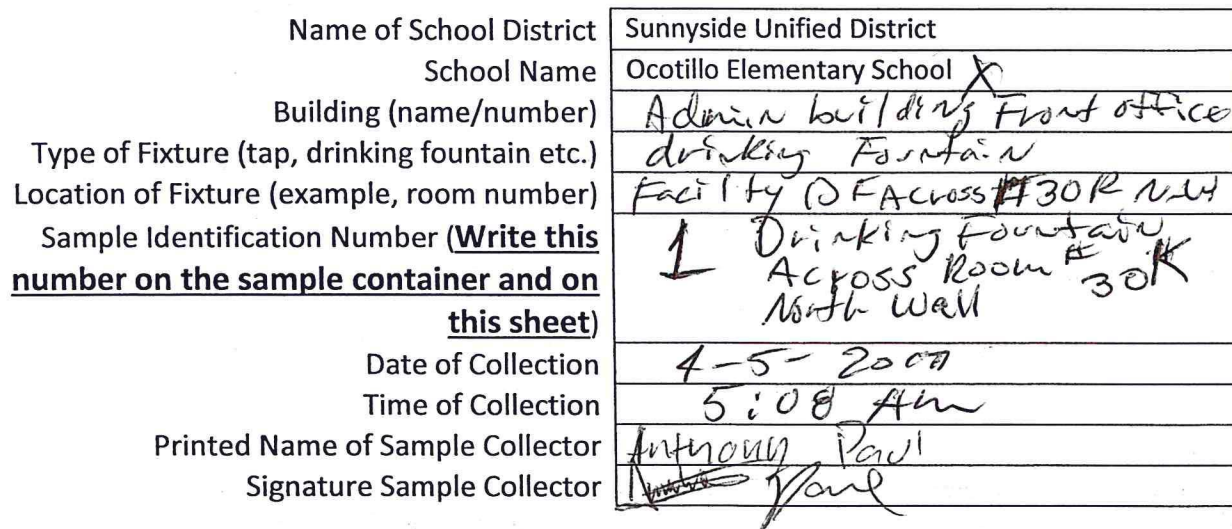 Name of School District Sunnyside Unified District
School Name Ocotillo Elementary School X
Building (name/number) Admin building Front office
Type of Fixture (tap, drinking fountain etc.) drinking Fountain
Location of Fixture (example, room number) Facilty DF Across #30R
Sample Identification Number (Write this
number on the sample container and on
this sheet)
1 Drinking Fountain
Across Room # 30K
North Wall
Date of Collection 4-5-
Time of Collection 5:08 Am
Printed Name of Sample Collector Anthony Paul
Signature Sample Collector Paul